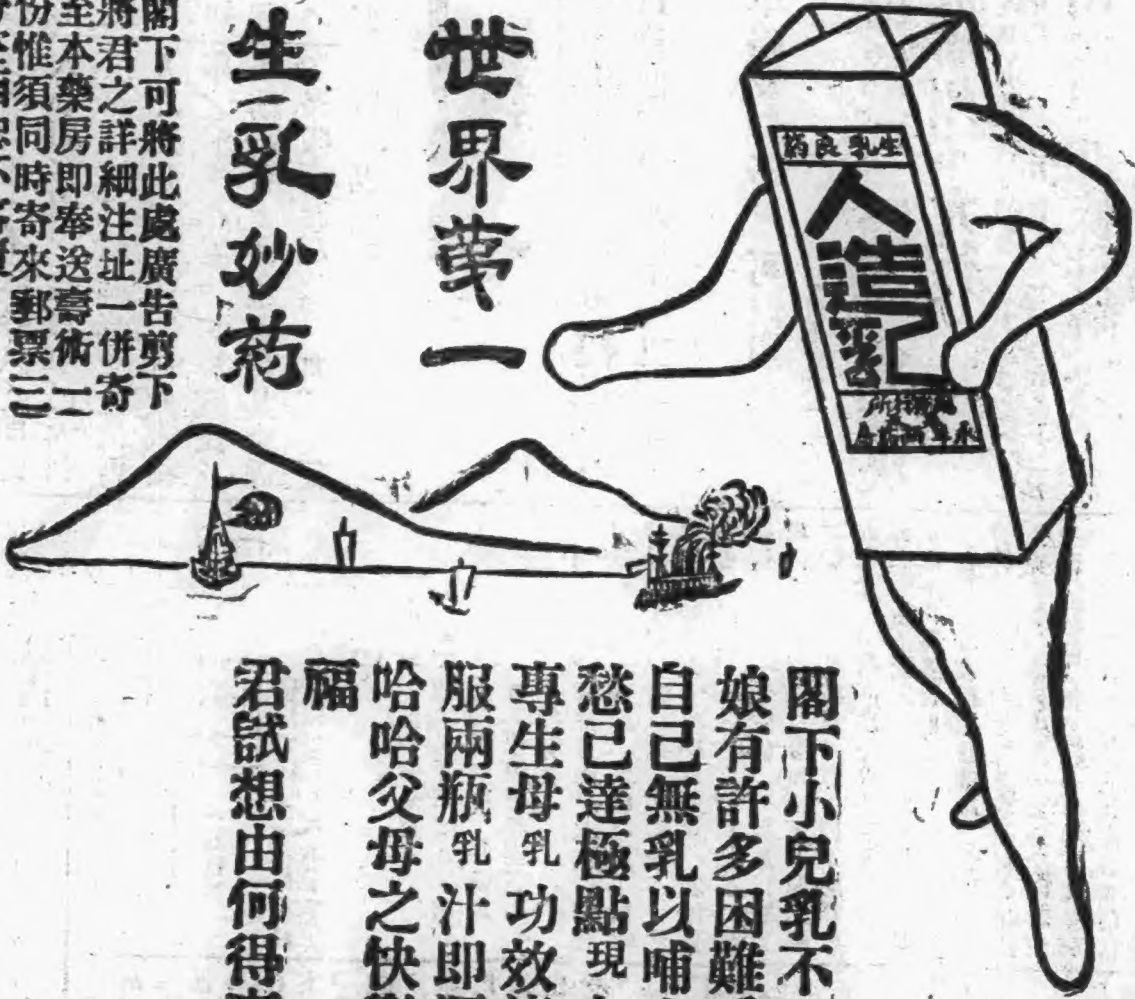 生乳良葯
人造乳
世界苐一
生乳妙葯
閣下可將此處廣告剪下
將君之詳細注址一併寄
至本藥房即奉送壽術一
份惟須同時寄來郵票三
閣下小兒乳不
娘有許多困難
自己無乳以哺
愁己達極點現
專生母乳功效
服兩瓶乳汁即
哈哈父母之快
福
君試想由何得